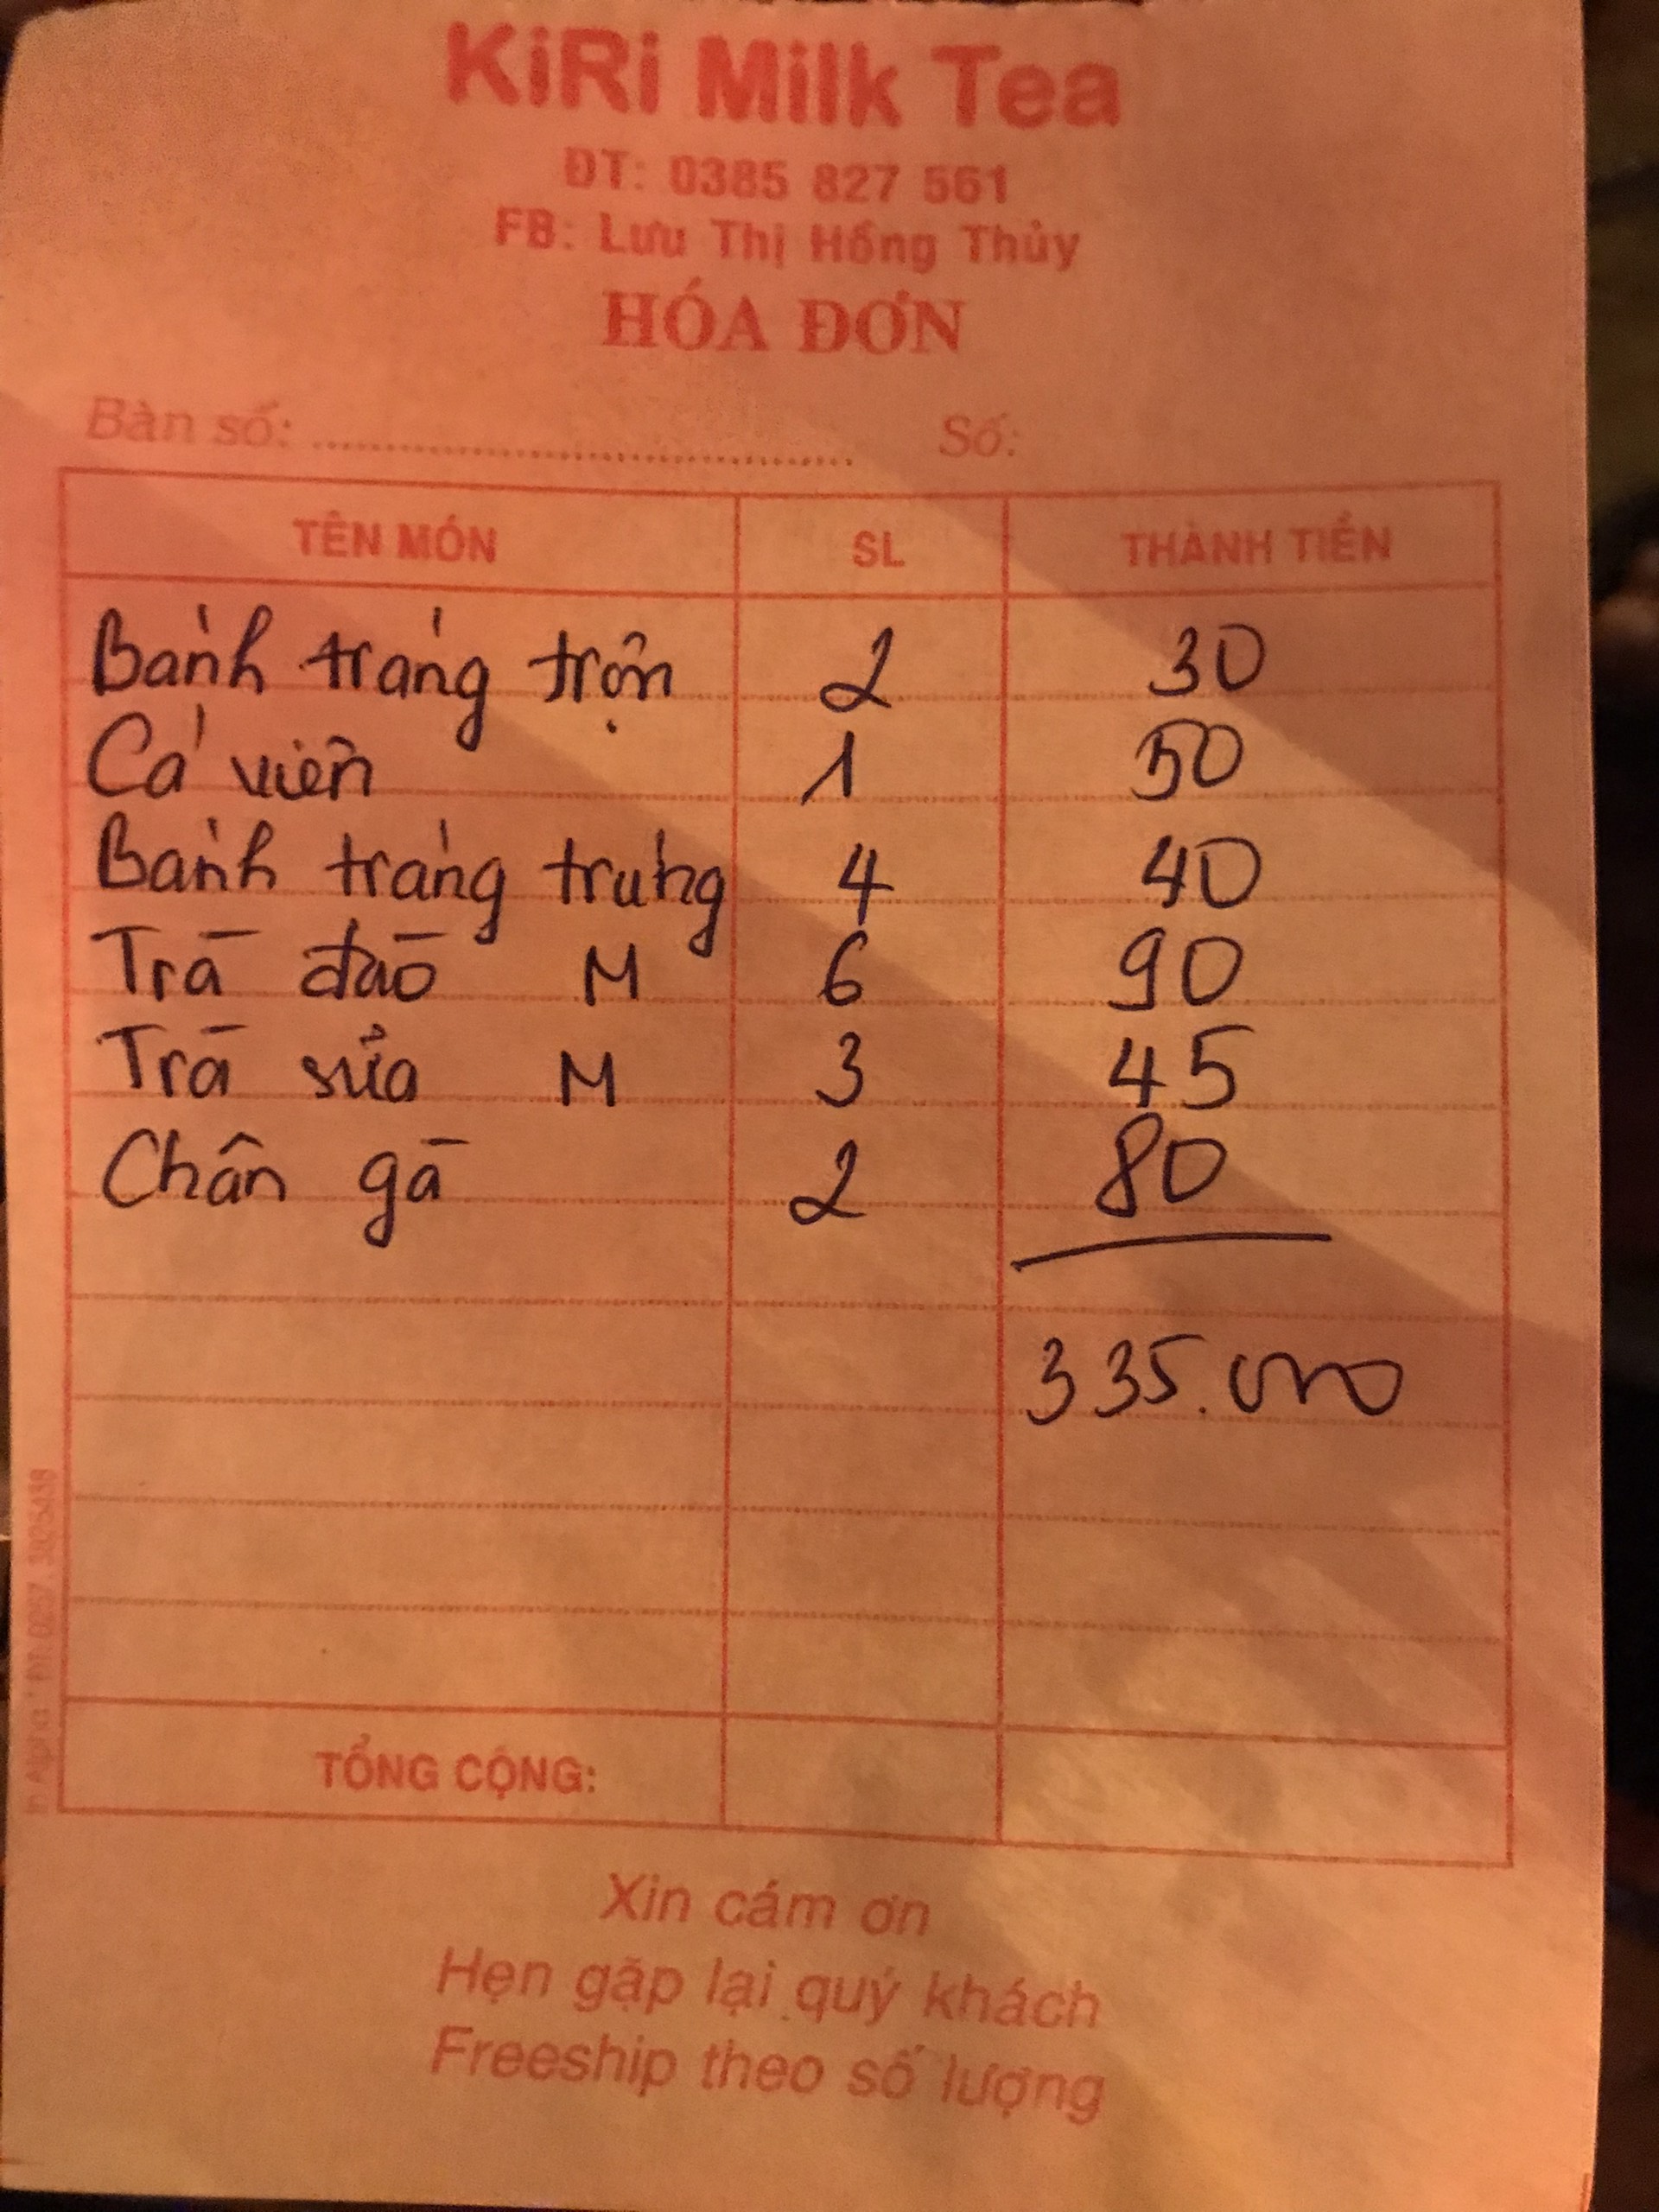 KiRi Milk Tea
ĐT: 0385 827 561
FB: Lưu Thị Hồng Thủy
HÓA ĐƠN
Bàn số: Số:
TÊN MÓN SL THÀNH TIỀN
Bánh tráng trộn 2 30
Cá viên 1 50
Bánh tráng trứng 4 40
Trà đào M 6 90
Trà sữa M 3 45
Chân gà 2 80
335.000
TỔNG CỘNG:
Xin cám ơn
Hẹn gặp lại quý khách
Freeship theo số lượng
In Alpha * ĐT: 0257. 3826438